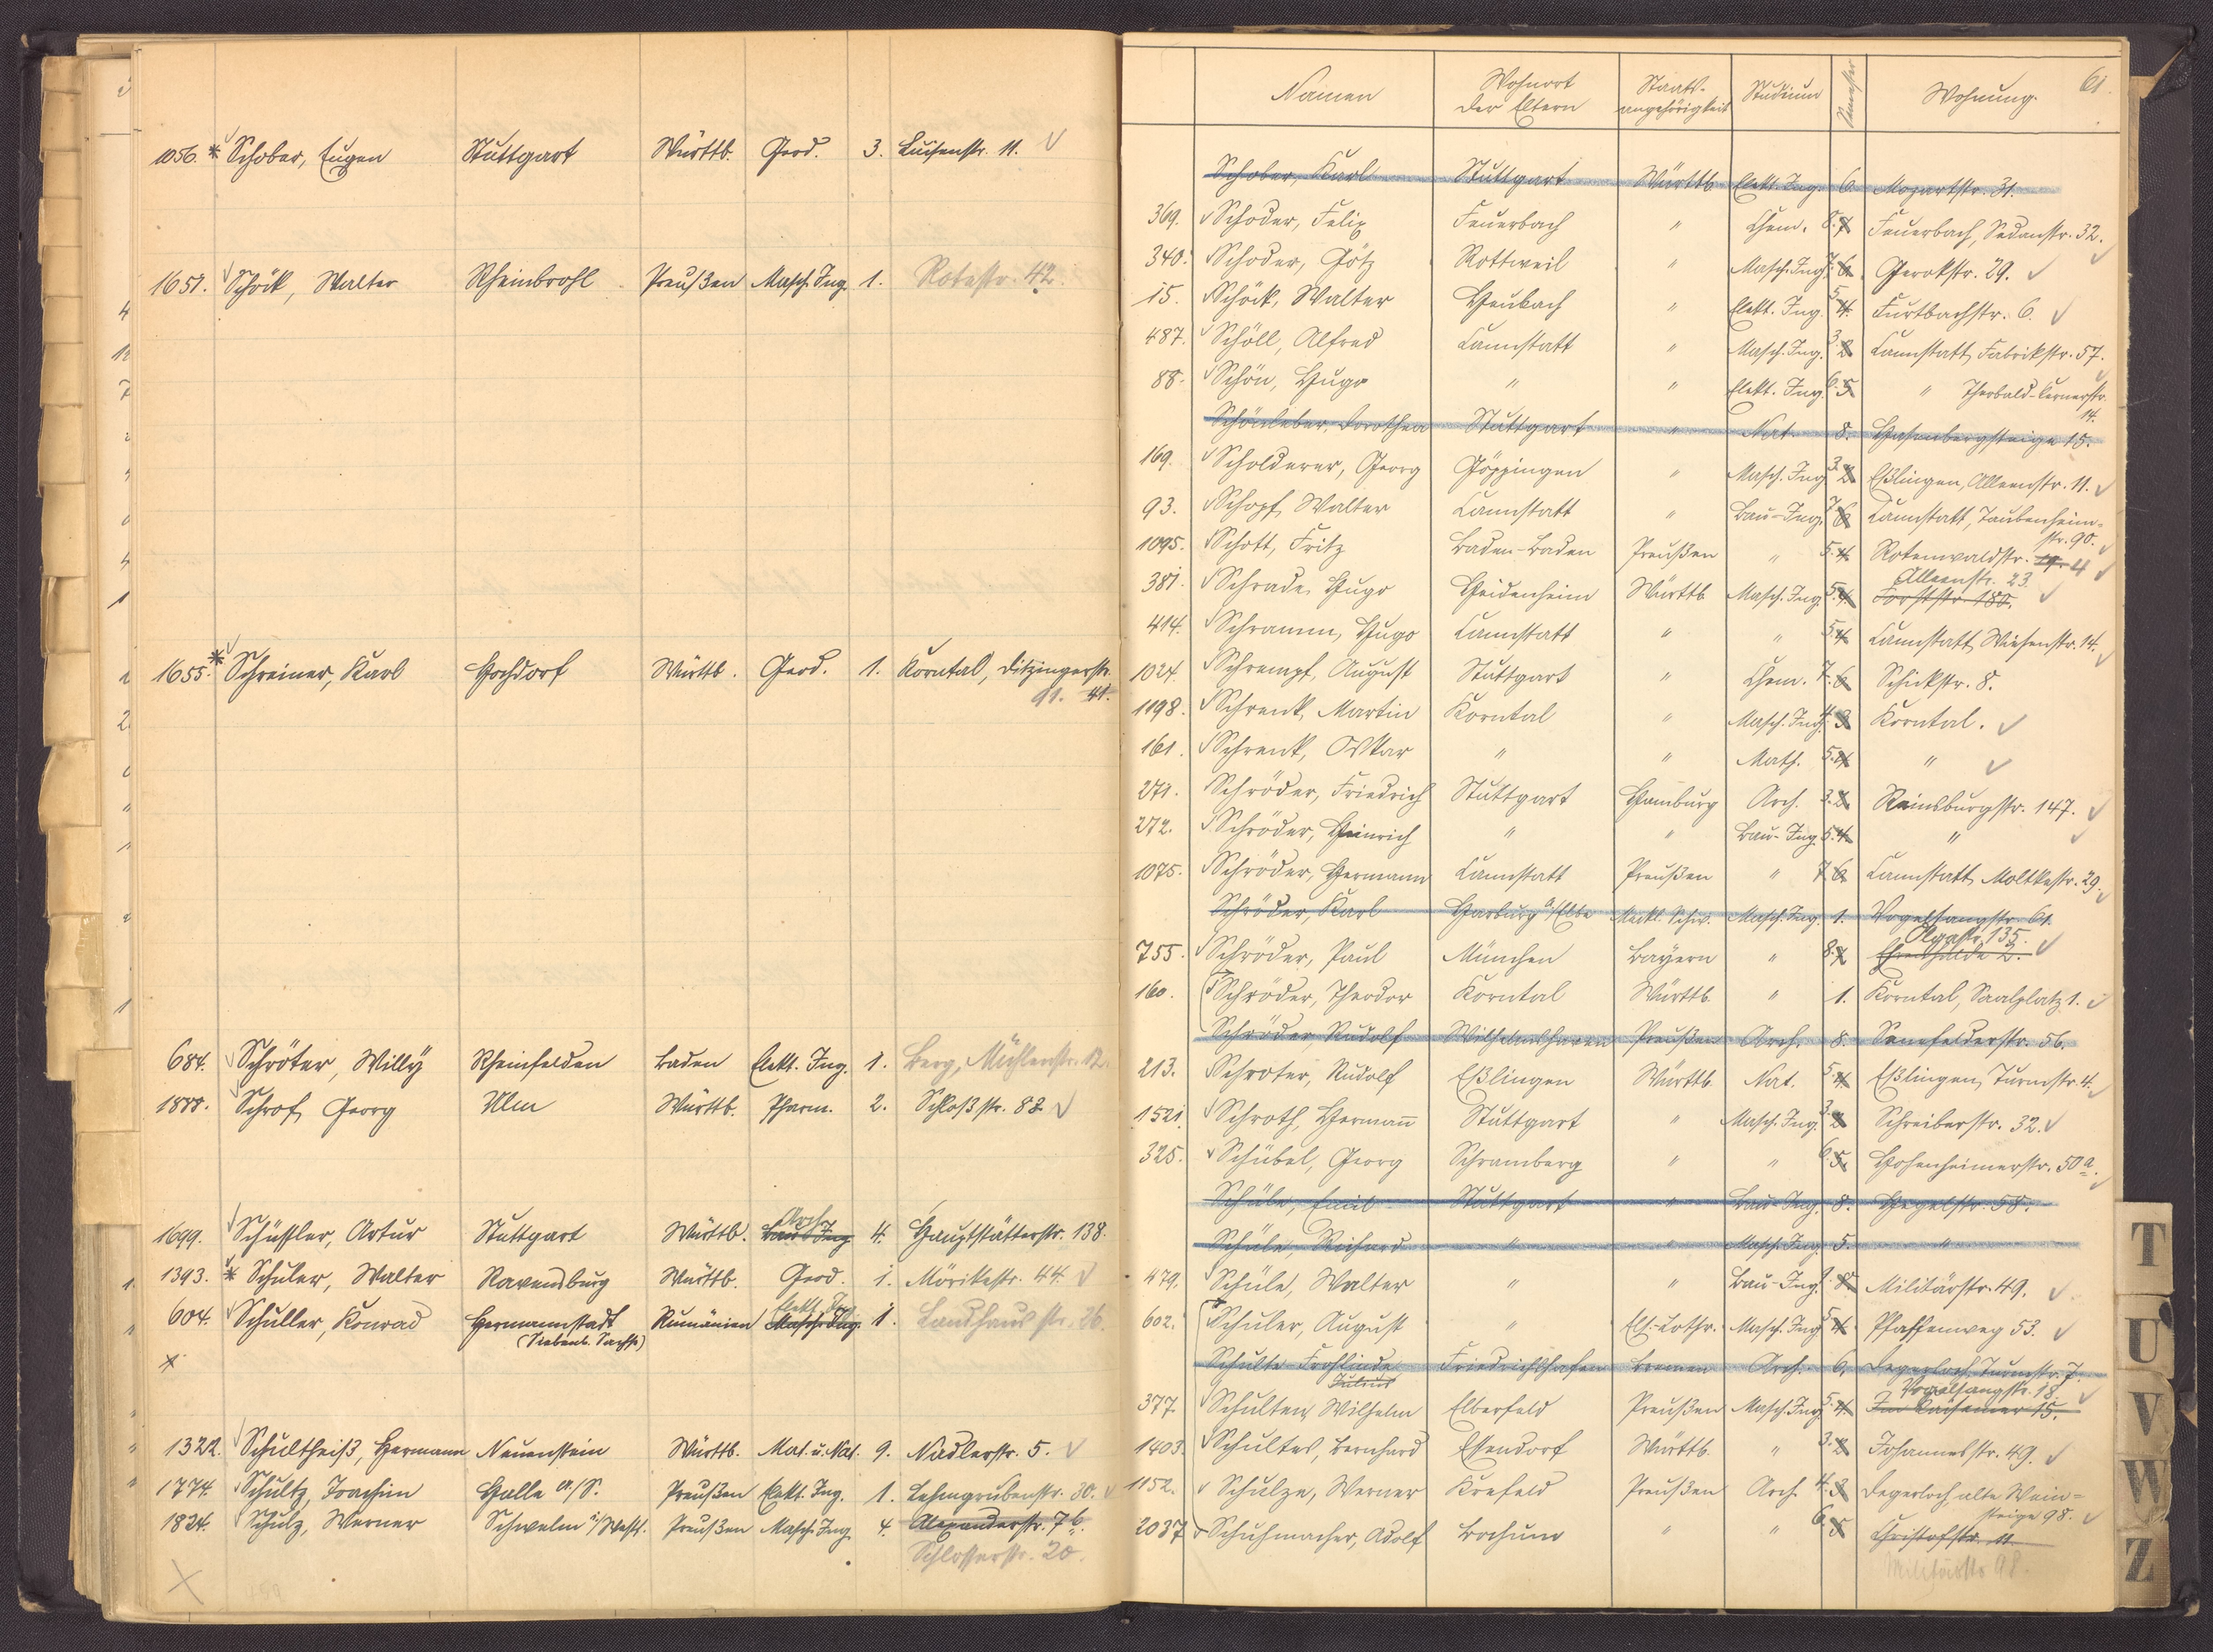 1056. * Schober, Eugen Stuttgart Württb. Geod. 3. Luisenstr. 11.
1651. Schöck, Walter Rheinbrohl Preußen Masch. Ing. 1. Rotestr. 42.
1655. * Schreiner, Karl Hochdorf Württb. Geod. 1. Korntal, Ditzingerstr.
91. 41.
684. Schröter, Willÿ Rheinfelden Baden Elekt. Ing. 1. Berg, Mühlenstr. 12.
1888. Schrof, Georg Ulm Württb. Pharm. 2. Schloßstr. 83
Arch.
1699. Schüssler, Artur Stuttgart Württb. Bau-Ing 4. Hauptstätterstr. 138.
1393. * Schuler, Walter Ravensburg Württb. Geod. 1. Mörikestr. 44.
Elekt. Ing.
604. Schuller, Konrad Hermannstadt Rumänien Masch. Ing. 1. Landhausstr. 26.
(Siebenb. Sachs.)
1322. Schultheiß, Hermann Neuenstein Württb. Mat. u. Nat. 9. Nadlerstr. 5.
1774. Schultz, Joachim Halle a/S. Preußen Elekt. Ing. 1. Lehmgrubenstr. 30.
1824. Schulz, Werner Schwelm i/Westf. Preußen Masch. Ing. 4. Alexanderstr. 76.
Schlosserstr. 20.
61.
Namen Wohnort der Eltern Staats-angehörigkeit Studium Semester Wohnung.
Schober, Karl Stuttgart Württb. Elekt. Ing. 6. Mozartstr. 31.
369. Schoder, Felix Feuerbach " Chem. 8. 7. Feuerbach, Sedanstr. 32.
340. Schoder, Götz Rottweil " Masch. Ing. 7. 6. Gerokstr. 29.
15. Schöck, Walter Heubach " Elekt. Ing. 5. 4. Furtbachstr. 6.
487. Schöll, Alfred Cannstatt " Masch. Ing. 3. 2. Cannstatt, Fabrikstr. 57.
88. Schön, Hugo " " Elekt. Ing. 6. 5. " Theobald-Kernerstr.
14.
Schönleber, Dorothea Stuttgart " Nat. 8. Hasenbergsteige 15.
169. Scholderer, Georg Göppingen " Masch. Ing. 3. 2. Eßlingen, Alleenstr. 11.
93. Schopf, Walter Cannstatt " Bau-Ing. 7. 6. Cannstatt, Taubenheim-
str. 90.
1095. Schott, Fritz Baden-Baden Preußen " 5. 4. Rotenwaldstr. 19. 4
Alleenstr. 23.
381. Schrade, Hugo Heidenheim Württb. Masch. Ing. 5. 4. Forststr. 180.
414. Schramm, Hugo Cannstatt " " 5. 4. Cannstatt, Wiesenstr. 14.
1024. Schrempf, August Stuttgart " Chem. 7. 6. Schickstr. 8.
1198. Schrenk, Martin Korntal " Masch. Ing. 4. 3. Korntal.
161. Schrenk, Oskar " " Math. 5. 4. "
271. Schröder, Friedrich Stuttgart Hamburg Arch. 3. 2. Reinsburgstr. 147.
272. Schröder, Heinrich " " Bau-Ing. 5. 4. "
1075. Schröder, Hermann Cannstatt Preußen " 7. 6. Cannstatt, Moltkestr. 29.
Schröder, Karl Harburg a/Elbe Meckl. Schw. Masch. Ing. 1. Vogelsangstr. 61.
Olgastr. 135.
755. Schröder, Paul München Bayern " 8. 7. 2.
160. Schröder, Theodor Korntal Württb. " 1. Korntal, Saalplatz 1.
Schröder, Rudolf Wilhelmshaven Preußen Arch. 8. Senefelderstr. 56.
213. Schroter, Rudolf Eßlingen Württb. Nat. 5. 4. Eßlingen, Turmstr. 4.
1521. Schroth, Hermann Stuttgart " Masch. Ing. 3. 2. Schreiberstr. 32.
325. Schübel, Georg Schramberg " " 6. 5. Hohenheimerstr. 50a.
Schüle, Emil Stuttgart " Bau-Ing. 8. Hegelstr. 58.
Schüle, Richard " " Masch. Ing. 5. "
479. Schüle, Walter " " Bau-Ing. 8. Militärstr. 49.
602. Schuler, August " Els.-Lothr. Masch. Ing. 5. 4. Pfaffenweg 53.
Schulte-Frohlinde Friedrichshafen Bremen Arch. 6. Degerloch, Turmstr. 7.
Julius Vogelsangstr. 18.
377. Schulten, Wilhelm Elberfeld Preußen Masch. Ing. 5. 4. Im Kaisemer 15.
1403. Schultes, Bernhard Essendorf Württb. " 3. 2. Johannesstr. 49.
1152. Schulze, Werner Krefeld Preußen Arch. 4. 3. Degerloch, alte Wein-
steige 98.
2037. Schuhmacher, Adolf Bochum " " 6. 5. Christofstr. 11
Militärstr. 98.
T
U
V
W
Z